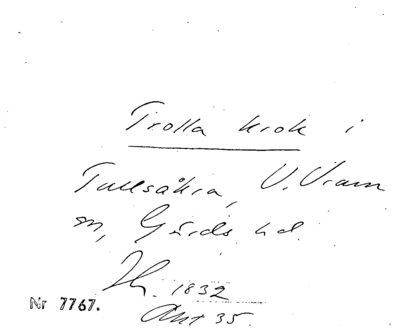 Trolla krok i
Tullsåkra, V. Vram
sn, Gärds hd.
1832
Akt 35.
Nr 7767.